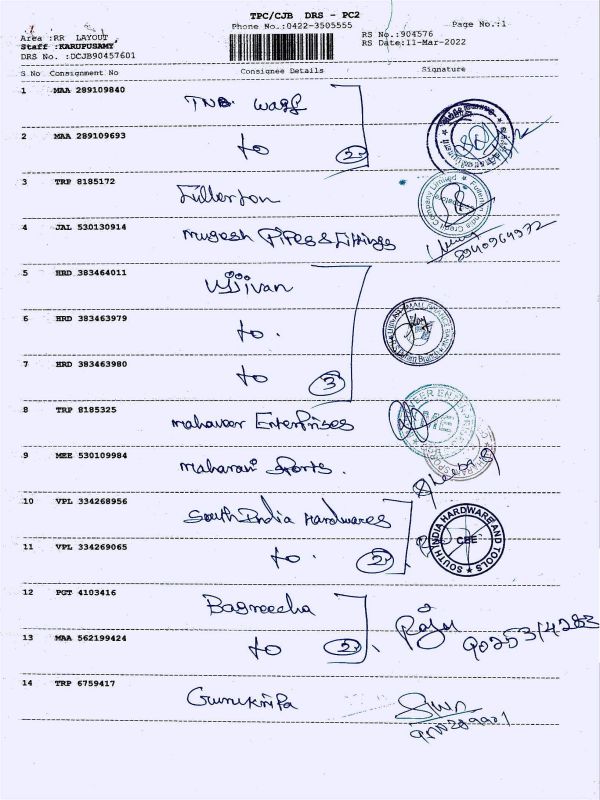 TPC/CJB DRS - PC2
Phone No.:0422-3505555
Page No.:1
Area :RR LAYOUT
Staff :KARUPUSAMY
DRS No. :DCJB90457601
RS No.:904576
RS Date:11-Mar-2022
S No Consignment No Consignee Details Signature
1 MAA 289109840
2 MAA 289109693 to 2
3 TRP 8185172 Fullerton
4 JAL 530130914 Mugesh Pipes & Fittings
8940964972
5 HRD 383464011 Ujjivan
6 HRD 383463979 to.
7 HRD 383463980 to 3
8 TRP 8185325 Mahaveer Enterprises
9 MEE 530109984 Maharani Sports.
10 VPL 334268956 South India Hardwares
SOUTH INDIA HARDWARE AND TOOLS
CBE
11 VPL 334269065 to. 2
12 PGT 4103416 Bagreecha
Raju
13 MAA 562199424 to 2
14 TRP 6759417 Gurukripa